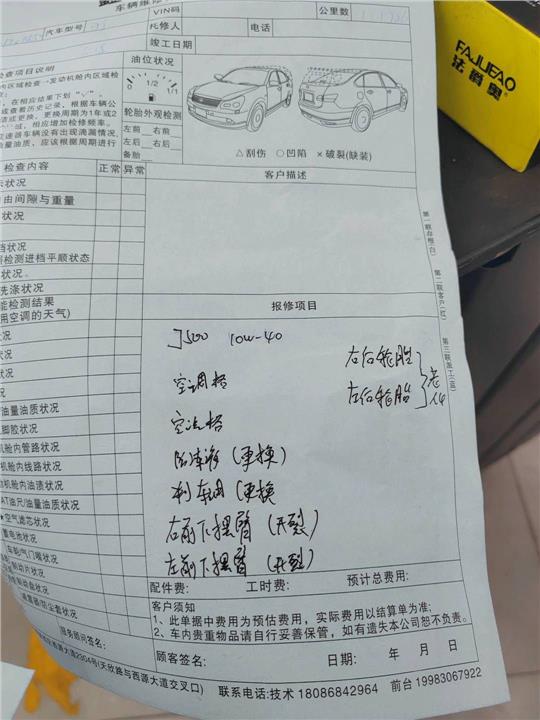 车辆维修
VIN码
公里数
汽车型号
托修人
电话
竣工日期
检查项目说明
油位状况
1/2
1/1
轮胎外观检测
左前 右前
左后 右后
备胎
△刮伤 ○凹陷 ×破裂(缺装)
FAJUEAO
法爵奥
检查内容 正常 异常
客户描述
状况
由间隙与重量
状况
档状况
检测进档平顺状态
状况。
洗涤状况
能检测结果
用空调的天气)
报修项目
况
J500 10W-40
右后轮胎
左后轮胎
老化
空调格
空滤格
防冻液(更换)
刹车油(更换
右前下摆臂(开裂)
左前下摆臂(开裂)
油量油质状况
脚胶状况
机舱内管路状况
机舱内线路状况
动机舱内油渍状况
AT油尺/油量油质状况
★空气滤芯状况
蓄电池状况
第一联存根(白)
第二联客户(红)
第三联派工(蓝)
配件费: 工时费: 预计总费用:
客户须知
1、此单据中费用为预估费用,实际费用以结算单为准;
2、车内贵重物品请自行妥善保管,如有遗失本公司恕不负责。
服务顾问签名:
顾客签名: 日期: 年 月 日
源大道2304号(天欣路与西源大道交叉口) 联系电话:技术 18086842964 前台 19983067922